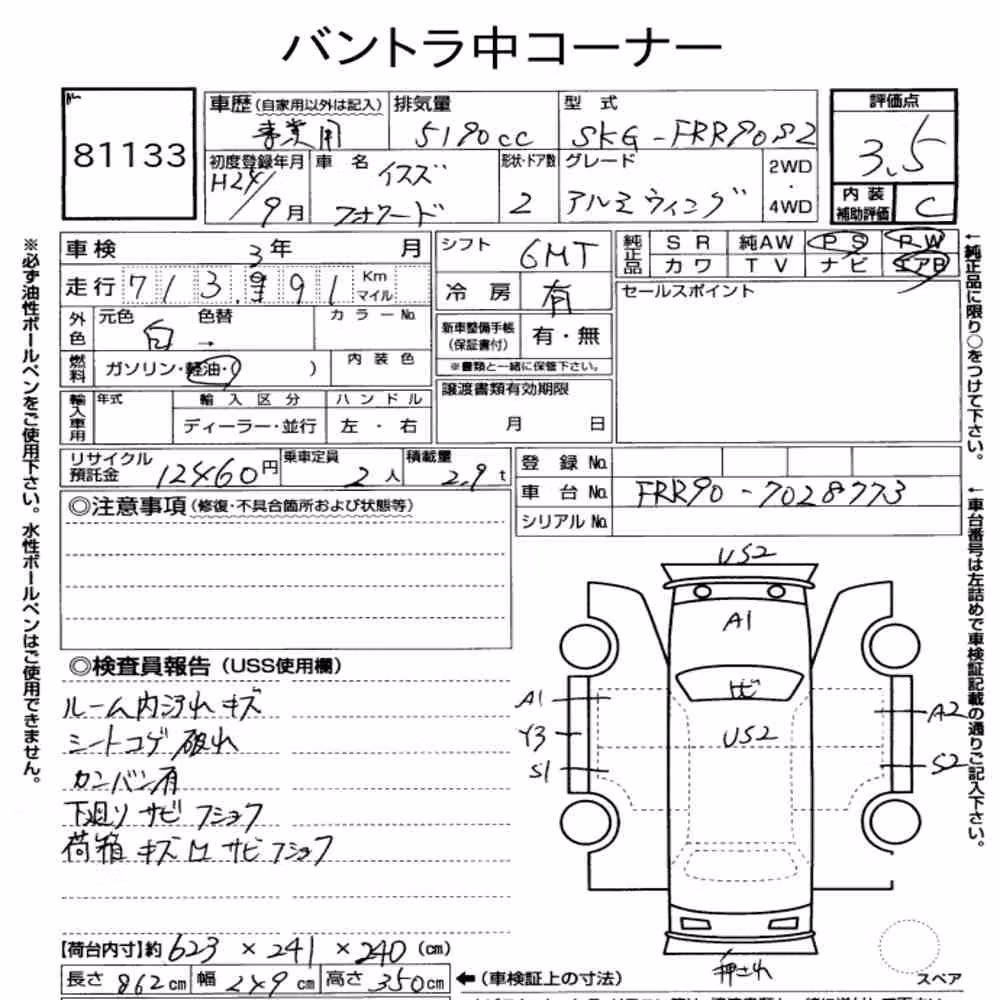 バントラ中コーナー
81133
車歴(自家用以外は記入) 事業用
排気量 5190cc
型式 SKG-FRR90S2
評価点 3.5
初度登録年月 H24/9月
車名 イスズ フォワード
形状・ドア数 2
グレード アルミウィング
2WD・4WD
内装補助評価 C
車検 3年 月
シフト 6MT
純正品 SR 純AW PS PW
カワ TV ナビ エアB
走行 713,991 Km マイル
冷房 有
セールスポイント
外色 元色 白 → 色替 カラーNo.
新車整備手帳(保証書付) 有・無
※書類と一緒に保管下さい。
燃料 ガソリン・軽油・( )
内装色
譲渡書類有効期限 月 日
輸入車用 年式 輸入区分 ハンドル
ディーラー・並行 左・右
リサイクル預託金 12460円
乗車定員 2人
積載量 2.9t
登録No.
車台No. FRR90-7028773
シリアルNo.
◎注意事項(修復・不具合箇所および状態等)
◎検査員報告(USS使用欄)
ルーム内汚れ キズ
シートコゲ 破れ
カンバン有
下廻り サビ フショク
荷箱 キズ凹 サビフショク
US2
A1
ヒビ
US2
A1
Y3
S1
A2
S2
押され
スペア
【荷台内寸】約 623 × 241 × 240 (cm)
長さ 862cm 幅 249cm 高さ 350cm ←(車検証上の寸法)
※必ず油性ボールペンをご使用下さい。水性ボールペンはご使用できません。
←純正品に限り○をつけて下さい。
←車台番号は左詰めで車検証記載の通りご記入下さい。